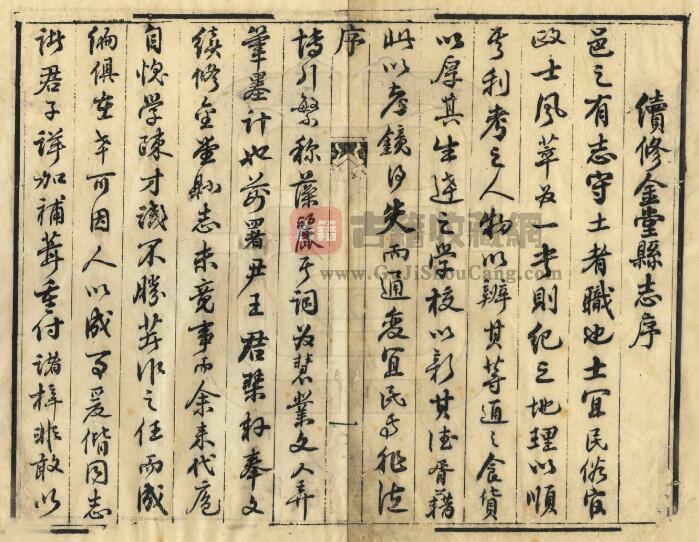 續修金堂縣志序
邑之有志守土者職也土宜民俗官
政士風萃於一書則紀之地理以順
其利考之人物以辨其等通之食貨
以厚其生達之學校以新其德胥藉
此以考鏡得失而通變宜民焉非徒
序
一
博引繁称藻麗其詞為慧業文人弄
筆墨計也前署尹王君琹軒奉文
續修金堂縣志未竟事而余来代庖
自愧學陳才識不勝著作之任而成
編俱在幸可因人以成事爰偕同志
諸君子詳加補葺重付諸梓非敢以
古籍收藏網
www.GuJiShouCang.com